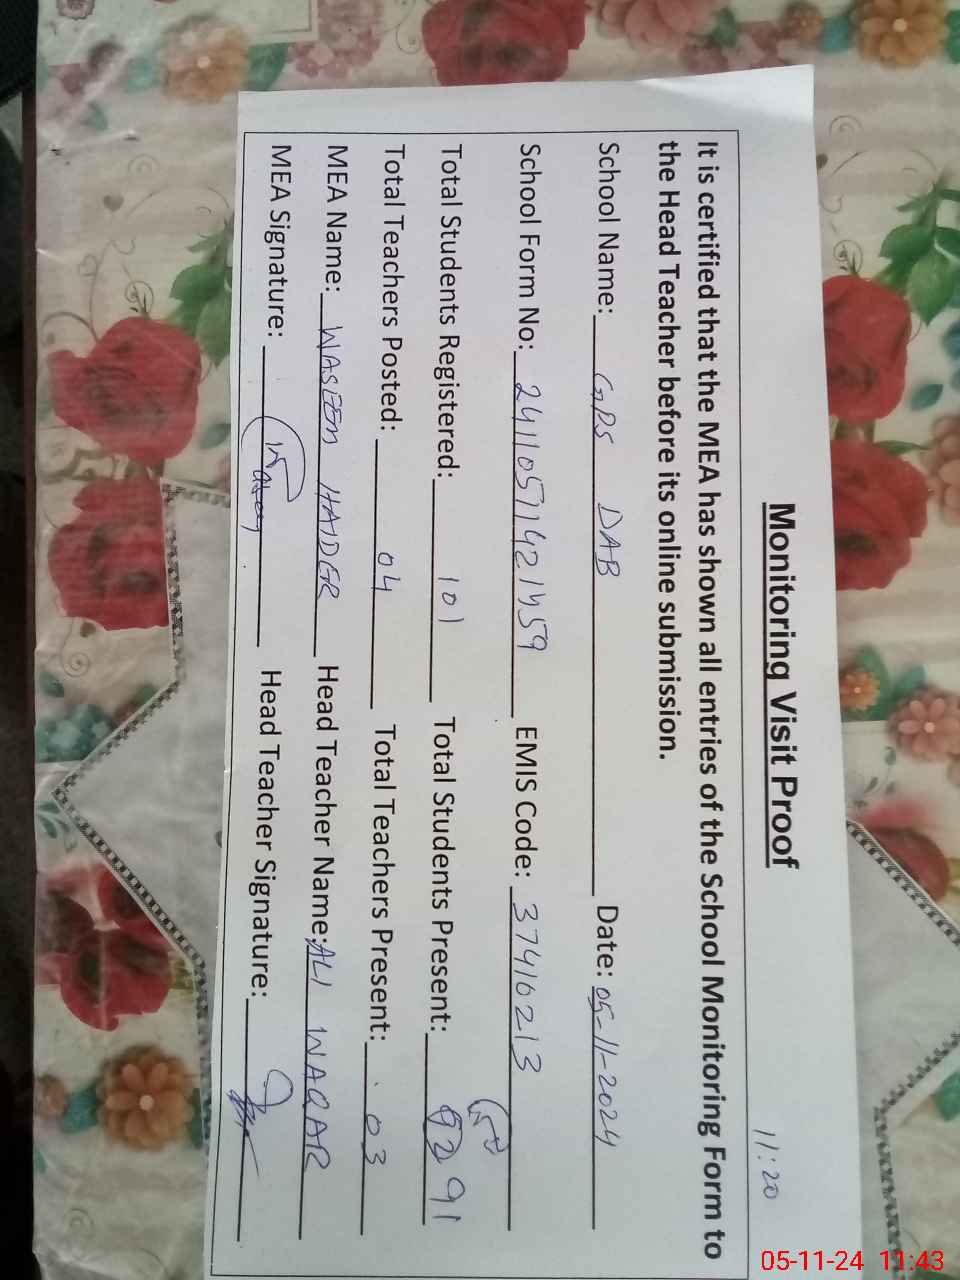 11:20
Monitoring Visit Proof
It is certified that the MEA has shown all entries of the School Monitoring Form to
the Head Teacher before its online submission.
School Name: GPS DAB Date: 05-11-2024
School Form No: 24110511421459 EMIS Code: 37410213
Total Students Registered: 101 Total Students Present: 92 91
Total Teachers Posted: 04 Total Teachers Present: 03
MEA Name: WASEEM HAIDER Head Teacher Name: ALI WAQAR
MEA Signature: Head Teacher Signature:
05-11-24 11:43